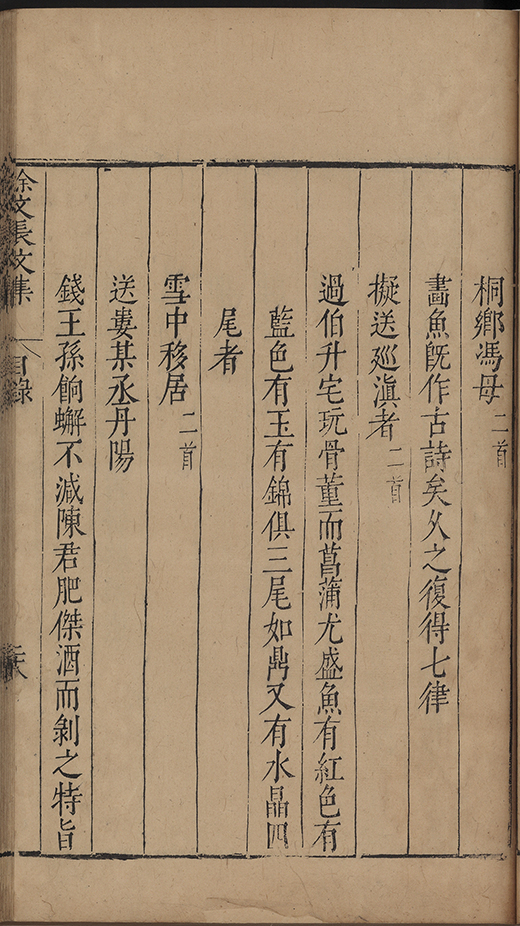 桐鄉馮母二首
畵魚旣作古詩矣久之復得七律
擬送廵滇者二首
過伯升宅玩骨董而菖蒲尤盛魚有紅色有
藍色有玉有錦俱三尾如鼎又有水晶四
尾者
雪中移居二首
送婁某丞丹陽
錢王孫餉蠏不減陳君肥傑酒而剝之特旨
徐文長文集
目錄